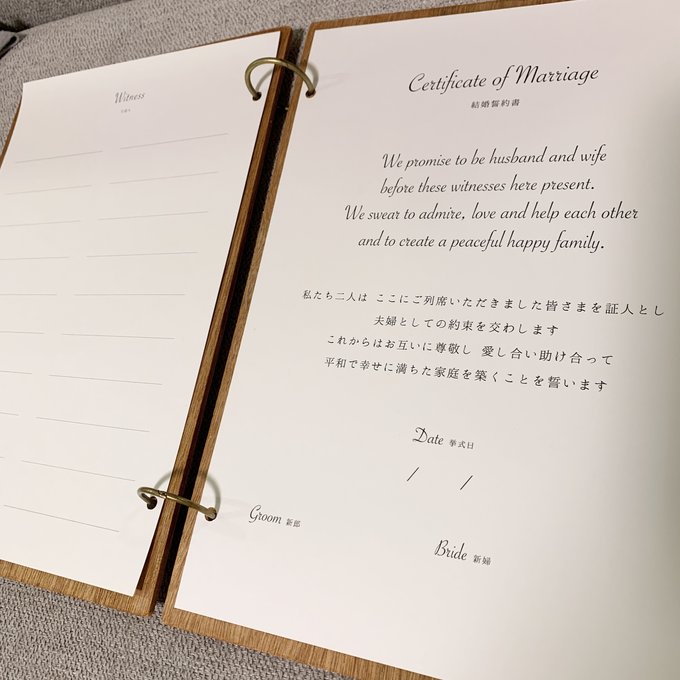 Witness
Certificate of Marriage
結婚誓約書
We promise to be husband and wife
before these witnesses here present.
We swear to admire, love and help each other
and to create a peaceful happy family.
私たち二人は ここにご列席いただきました皆さまを証人とし
夫婦としての約束を交わします
これからはお互いに尊敬し 愛し合い助け合って
平和で幸せに満ちた家庭を築くことを誓います
Date 挙式日
/ /
Groom 新郎
Bride 新婦